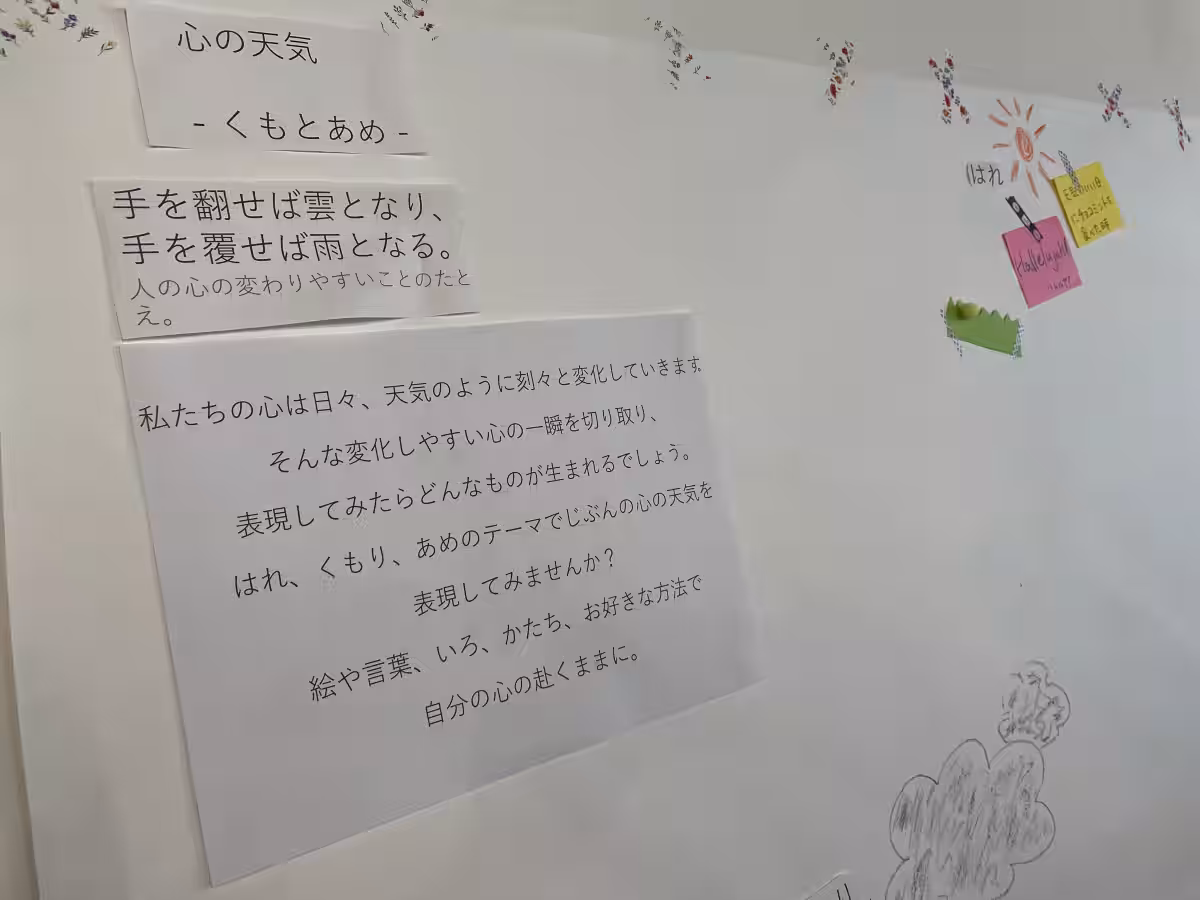 心の天気
- くもとあめ -
手を翻せば雲となり、
手を覆せば雨となる。
人の心の変わりやすいことのたと
え。
私たちの心は日々、天気のように刻々と変化していきます。
そんな変化しやすい心の一瞬を切り取り、
表現してみたらどんなものが生まれるでしょう。
はれ、くもり、あめのテーマでじぶんの心の天気を
表現してみませんか？
絵や言葉、いろ、かたち、お好きな方法で
自分の心の赴くままに。
はれ
チョコミントを
食べた時
Hallelujah
り